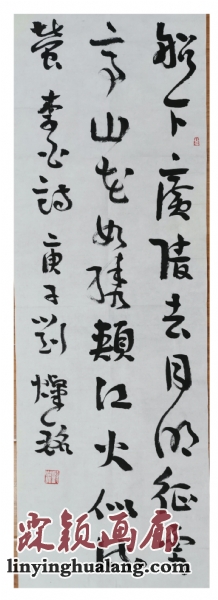 船下廣陵去月明征虜
亭山花如繡頰江火似流
螢 李白詩 庚子劉燦銘
霖颖画廊
linyinghualang.com